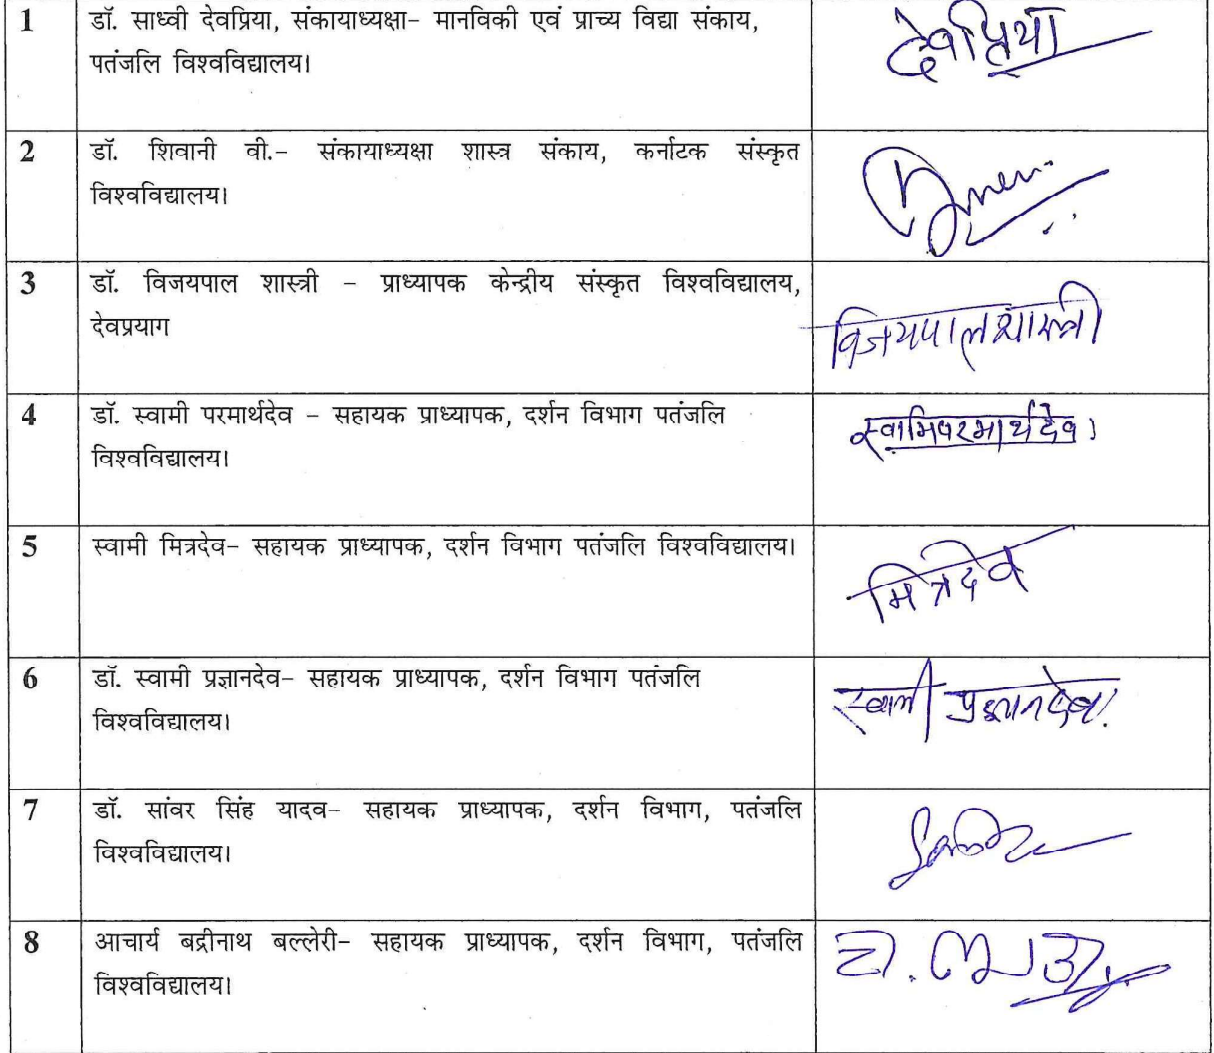 1 डॉ. साध्वी देवप्रिया, संकायाध्यक्षा– मानविकी एवं प्राच्य विद्या संकाय, देवप्रिया
पतंजलि विश्वविद्यालय।
2 डॉ. शिवानी वी.– संकायाध्यक्षा शास्त्र संकाय, कर्नाटक संस्कृत
विश्वविद्यालय।
3 डॉ. विजयपाल शास्त्री – प्राध्यापक केन्द्रीय संस्कृत विश्वविद्यालय,
देवप्रयाग विजयपाल शास्त्री
4 डॉ. स्वामी परमार्थदेव – सहायक प्राध्यापक, दर्शन विभाग पतंजलि स्वामिपरमार्थदेव।
विश्वविद्यालय।
5 स्वामी मित्रदेव– सहायक प्राध्यापक, दर्शन विभाग पतंजलि विश्वविद्यालय।
मित्रदेव
6 डॉ. स्वामी प्रज्ञानदेव– सहायक प्राध्यापक, दर्शन विभाग पतंजलि स्वामी प्रज्ञानदेव
विश्वविद्यालय।
7 डॉ. सांवर सिंह यादव– सहायक प्राध्यापक, दर्शन विभाग, पतंजलि
विश्वविद्यालय।
8 आचार्य बद्रीनाथ बल्लेरी– सहायक प्राध्यापक, दर्शन विभाग, पतंजलि
विश्वविद्यालय।